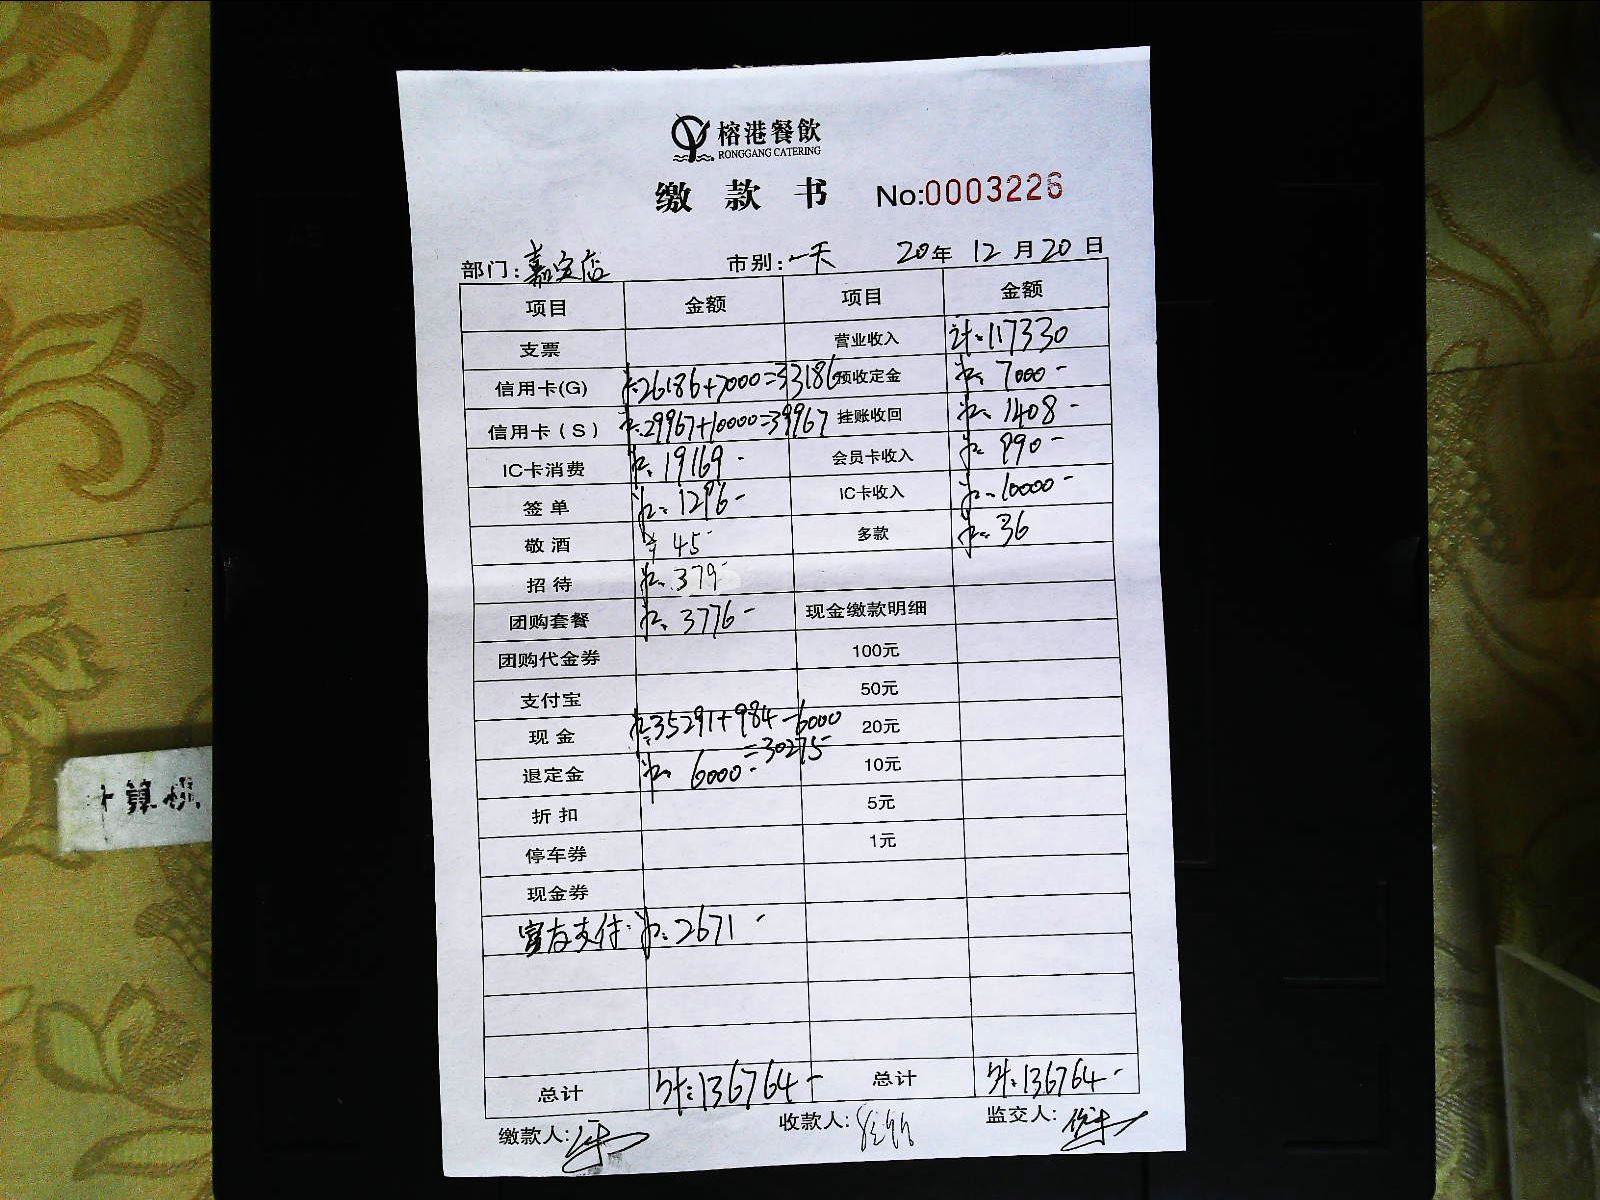 榕港餐飲
RONGGANG CATERING
缴 款 书 No:0003226
部门: 嘉定店 市别: 一天 20年 12月20日
项目 金额 项目 金额
支票 营业收入 计:117330
信用卡(G) 26186+7000=33186 预收定金 7000-
信用卡(S) 29967+10000=39967 挂账收回 1408-
IC卡消费 19169- 会员卡收入 990-
签单 1296- IC卡收入 10000-
敬酒 45- 多款 36
招待 379-
团购套餐 3776- 现金缴款明细
团购代金券 100元
支付宝 50元
现金 35291+984-6000 20元
=30275-
退定金 6000- 10元
折扣 5元
停车券 1元
现金券
支付: 2671-
总计 计:136764- 总计 计:136764-
缴款人: 收款人: 监交人:
计算机